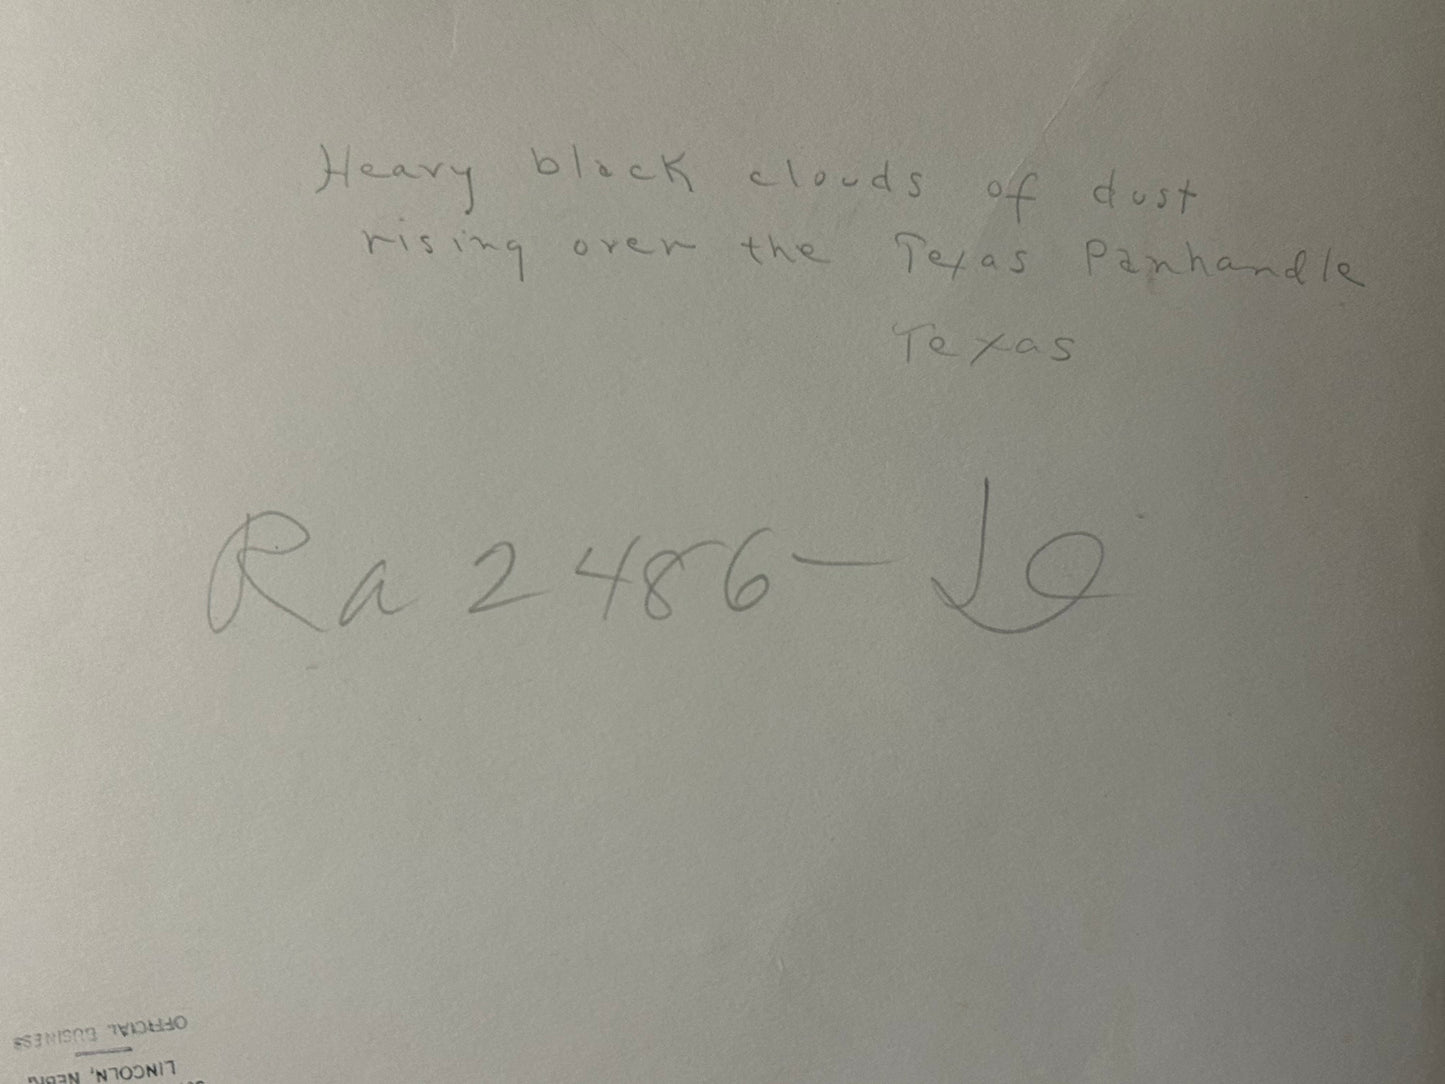 Heavy black clouds of dust
rising over the Texas Panhandle
Texas
Ra 2486-
OFFICIAL BUSINESS
LINCOLN,